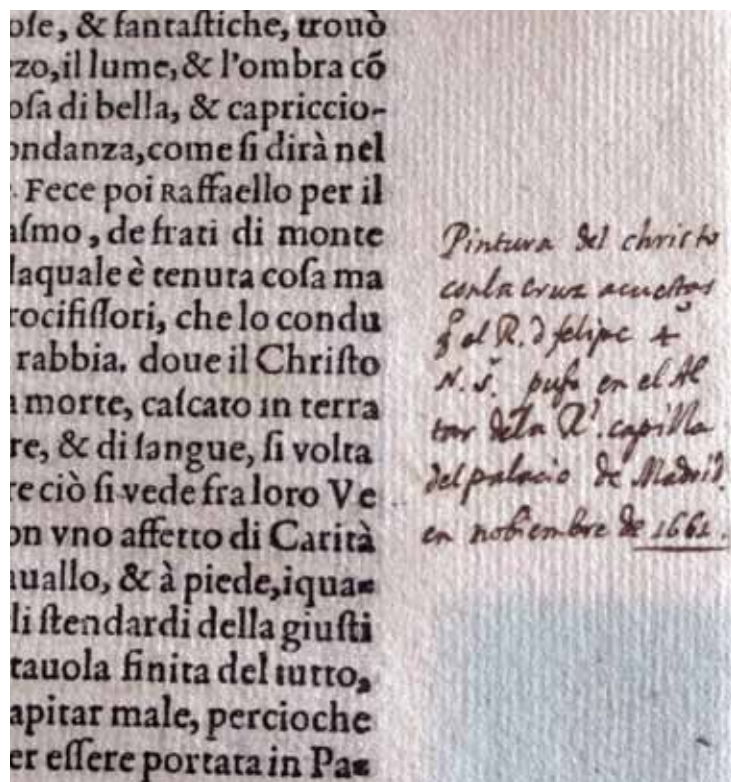 oſe, & fantaſtiche, trouò
zo, il lume, & l'ombra cõ
oſa di bella, & capriccio-
ondanza, come ſi dirà nel
. Fece poi Raffaello per il
aſmo, de frati di monte
laquale è tenuta coſa ma
rocifiſſori, che lo condu
rabbia. doue il Chriſto
a morte, caſcato in terra
re, & di ſangue, ſi volta
re ciò ſi vede fra loro Ve
on vno affetto di Carità
auallo, & à piede, iqua=
li ſtendardi della giuſti
tauola finita del tutto,
apitar male, percioche
er eſſere portata in Pa=
Pintura del chriſto
con la cruz acuestas
q̃ el R. d felipe 4º
N. S. puſo en el Al
tar de la Rˡ. capilla
del palacio de Madrid.
en nobiembre de 1661.